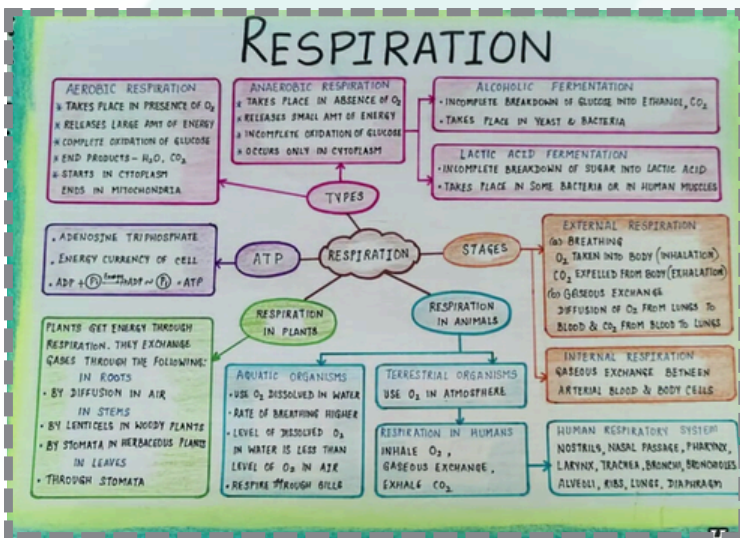 RESPIRATION
AEROBIC RESPIRATION
* TAKES PLACE IN PRESENCE OF O₂
* RELEASES LARGE AMT OF ENERGY
* COMPLETE OXIDATION OF GLUCOSE
* END PRODUCTS – H₂O, CO₂
* STARTS IN CYTOPLASM
ENDS IN MITOCHONDRIA
ANAEROBIC RESPIRATION
* TAKES PLACE IN ABSENCE OF O₂
* RELEASES SMALL AMT OF ENERGY
* INCOMPLETE OXIDATION OF GLUCOSE
* OCCURS ONLY IN CYTOPLASM
ALCOHOLIC FERMENTATION
• INCOMPLETE BREAKDOWN OF GLUCOSE INTO ETHANOL, CO₂
• TAKES PLACE IN YEAST & BACTERIA
LACTIC ACID FERMENTATION
• INCOMPLETE BREAKDOWN OF SUGAR INTO LACTIC ACID
• TAKES PLACE IN SOME BACTERIA OR IN HUMAN MUSCLES
TYPES
• ADENOSINE TRIPHOSPHATE
• ENERGY CURRENCY OF CELL
• ADP + Pi Energy → ADP ~ Pi = ATP
ATP
RESPIRATION
STAGES
EXTERNAL RESPIRATION
(a) BREATHING
O₂ TAKEN INTO BODY (INHALATION)
CO₂ EXPELLED FROM BODY (EXHALATION)
(b) GASEOUS EXCHANGE
DIFFUSION OF O₂ FROM LUNGS TO
BLOOD & CO₂ FROM BLOOD TO LUNGS
INTERNAL RESPIRATION
GASEOUS EXCHANGE BETWEEN
ARTERIAL BLOOD & BODY CELLS
RESPIRATION
IN PLANTS
RESPIRATION
IN ANIMALS
PLANTS GET ENERGY THROUGH
RESPIRATION. THEY EXCHANGE
GASES THROUGH THE FOLLOWING:
IN ROOTS
• BY DIFFUSION IN AIR
IN STEMS
• BY LENTICELS IN WOODY PLANTS
• BY STOMATA IN HERBACEOUS PLANTS
IN LEAVES
• THROUGH STOMATA
AQUATIC ORGANISMS
• USE O₂ DISSOLVED IN WATER
• RATE OF BREATHING HIGHER
• LEVEL OF DISSOLVED O₂
IN WATER IS LESS THAN
LEVEL OF O₂ IN AIR
• RESPIRE THROUGH GILLS
TERRESTRIAL ORGANISMS
USE O₂ IN ATMOSPHERE
RESPIRATION IN HUMANS
INHALE O₂,
GASEOUS EXCHANGE,
EXHALE CO₂
HUMAN RESPIRATORY SYSTEM
NOSTRILS, NASAL PASSAGE, PHARYNX,
LARYNX, TRACHEA, BRONCHI, BRONCHIOLES
ALVEOLI, RIBS, LUNGS, DIAPHRAGM